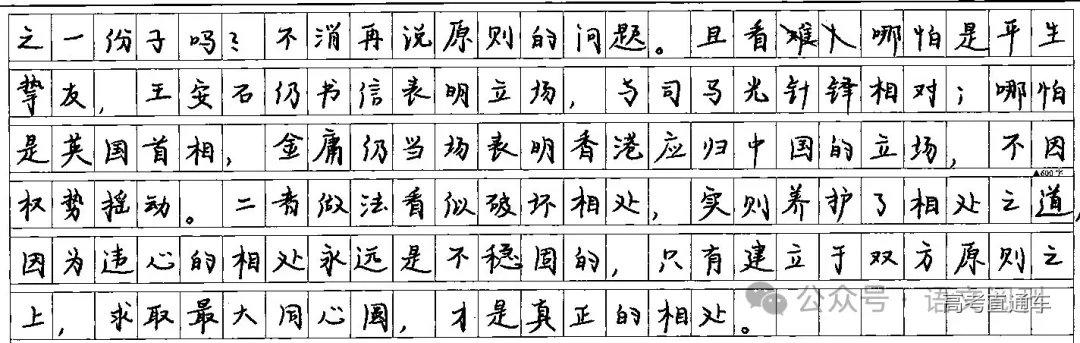 之一份子吗？不消再说原则的问题。且看哪怕是平生
挚友，王安石仍书信表明立场，与司马光针锋相对；哪怕
是英国首相，金庸仍当场表明香港应归中国的立场，不因
▲600字
权势摇动。二者做法看似破坏相处，实则养护了相处之道，
因为违心的相处永远是不稳固的，只有建立于双方原则之
上，求取最大同心圆，才是真正的相处。
公众号
高考直通车